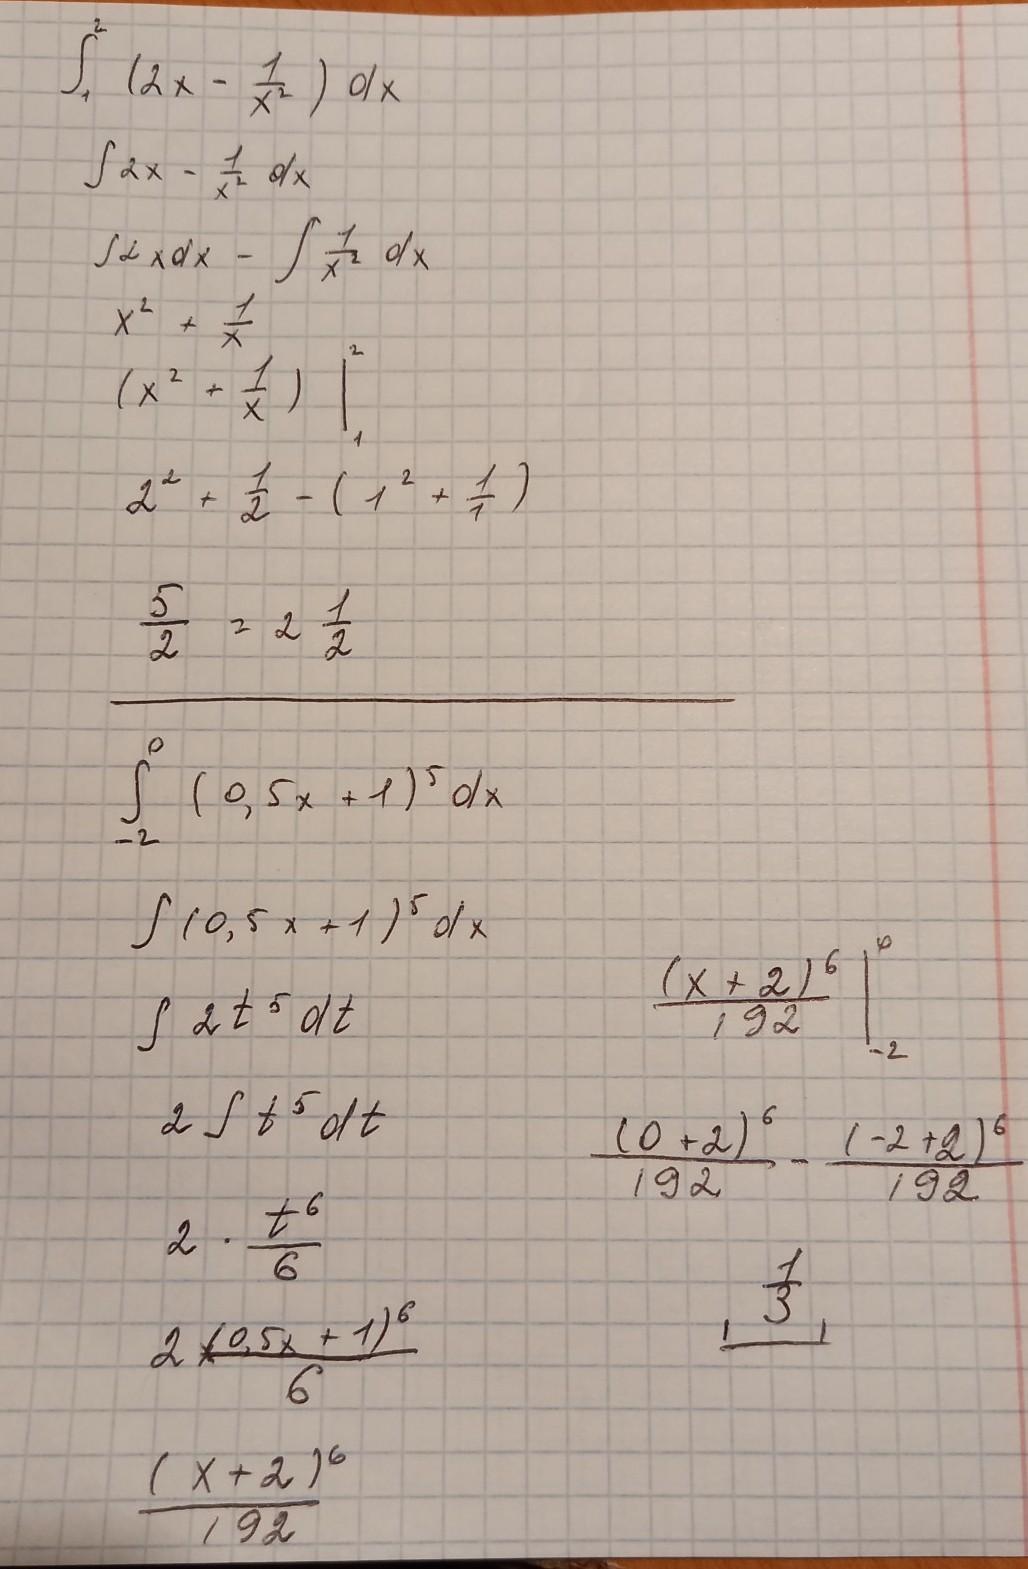 ∫₁² (2x - 1/x²) dx
∫ 2x - 1/x² dx
∫ 2x dx - ∫ 1/x² dx
x² + 1/x
(x² + 1/x) |₁²
2² + 1/2 - (1² + 1/1)
5/2 = 2 1/2
∫₋₂⁰ (0,5x + 1)⁵ dx
∫ (0,5x + 1)⁵ dx
∫ 2t⁵ dt
2 ∫ t⁵ dt
2 · t⁶/6
2 (0,5x + 1)⁶/6
(x + 2)⁶/192
(x + 2)⁶/192 |₋₂⁰
(0 + 2)⁶/192 - (-2 + 2)⁶/192
1/3